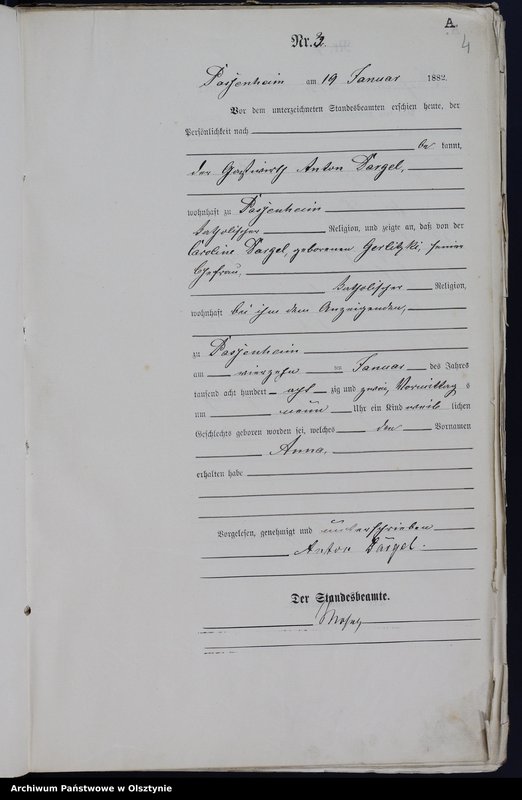 A.
4
Nr. 3.
Passenheim am 19 Januar 1882.
Vor dem unterzeichneten Standesbeamten erschien heute, der
Persönlichkeit nach
be kannt,
der Gastwirth Anton Dargel,
wohnhaft zu Passenheim
katholischer Religion, und zeigte an, daß von der
Caroline Dargel, geborenen Gerlitzki, seiner
Ehefrau,
katholischer Religion,
wohnhaft bei ihm dem Anzeigenden,
zu Passenheim
am vierzehn ten Januar des Jahres
tausend acht hundert acht zig und zwei, Vormittag s
um neun Uhr ein Kind weib lichen
Geschlechts geboren worden sei, welches den Vornamen
Anna,
erhalten habe
Vorgelesen, genehmigt und unterschrieben
Anton Dargel.
Der Standesbeamte.
Archiwum Państwowe w Olsztynie